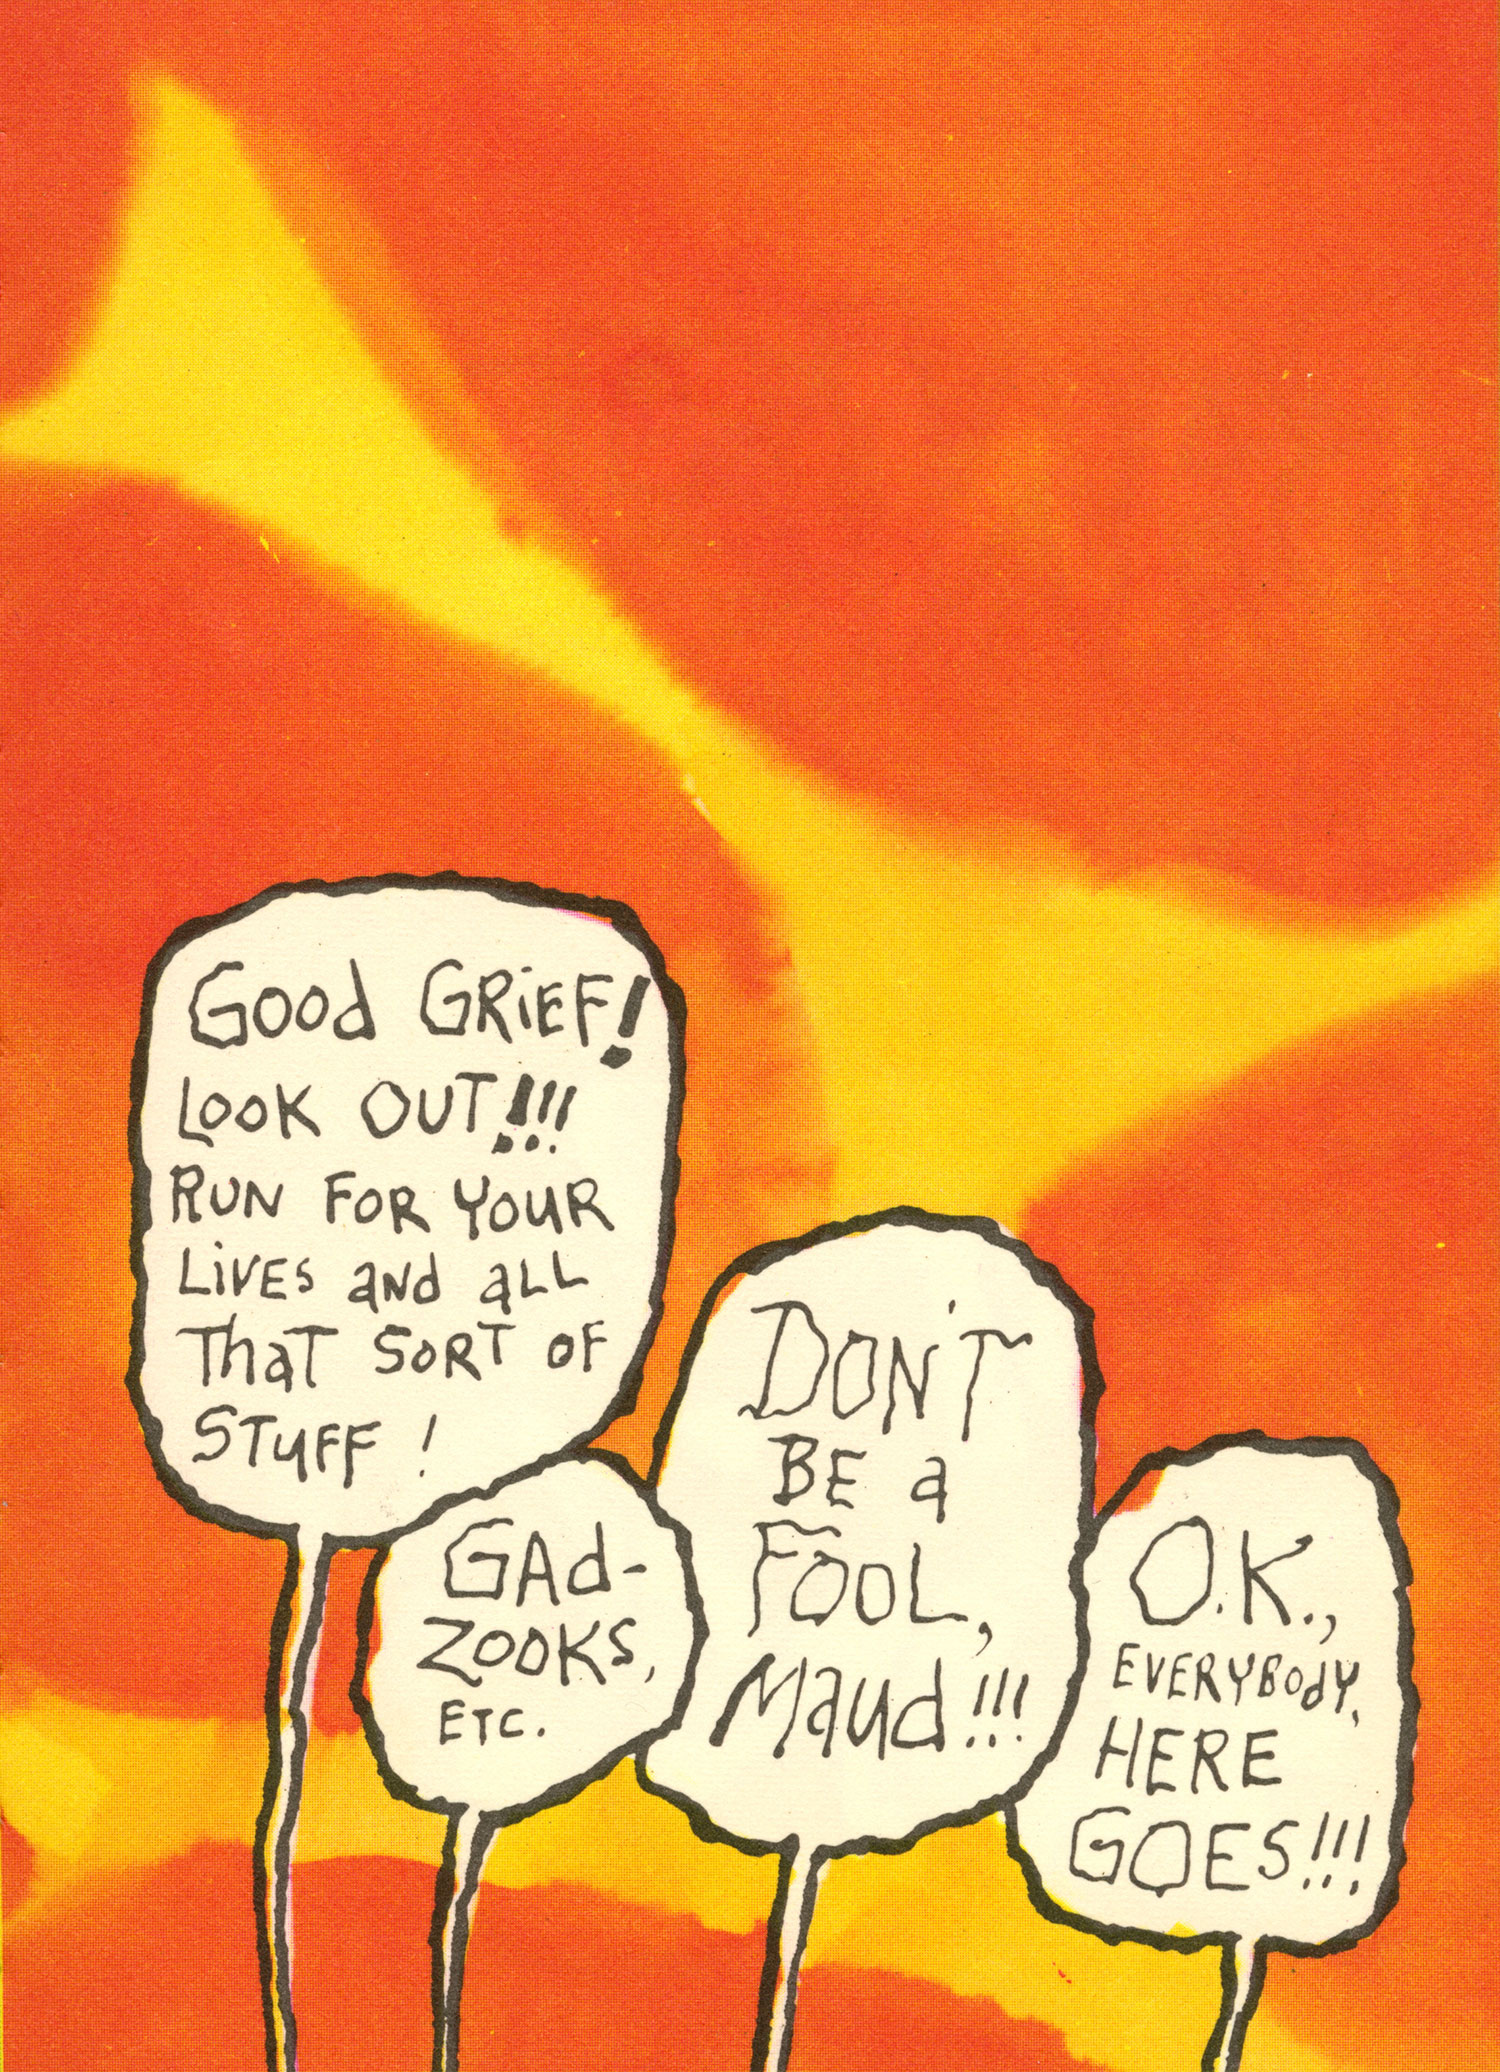 Good GRiEF!
LOOK OUT!!!
RUN FOR YOUR
LiVES and aLL
ThaT SORT OF
STUFF !
GAd-
ZOOKS,
ETC.
DON'T
BE a
FOOL,
Maud!!!
O.K.,
EVERYBOdY,
HERE
GOES!!!